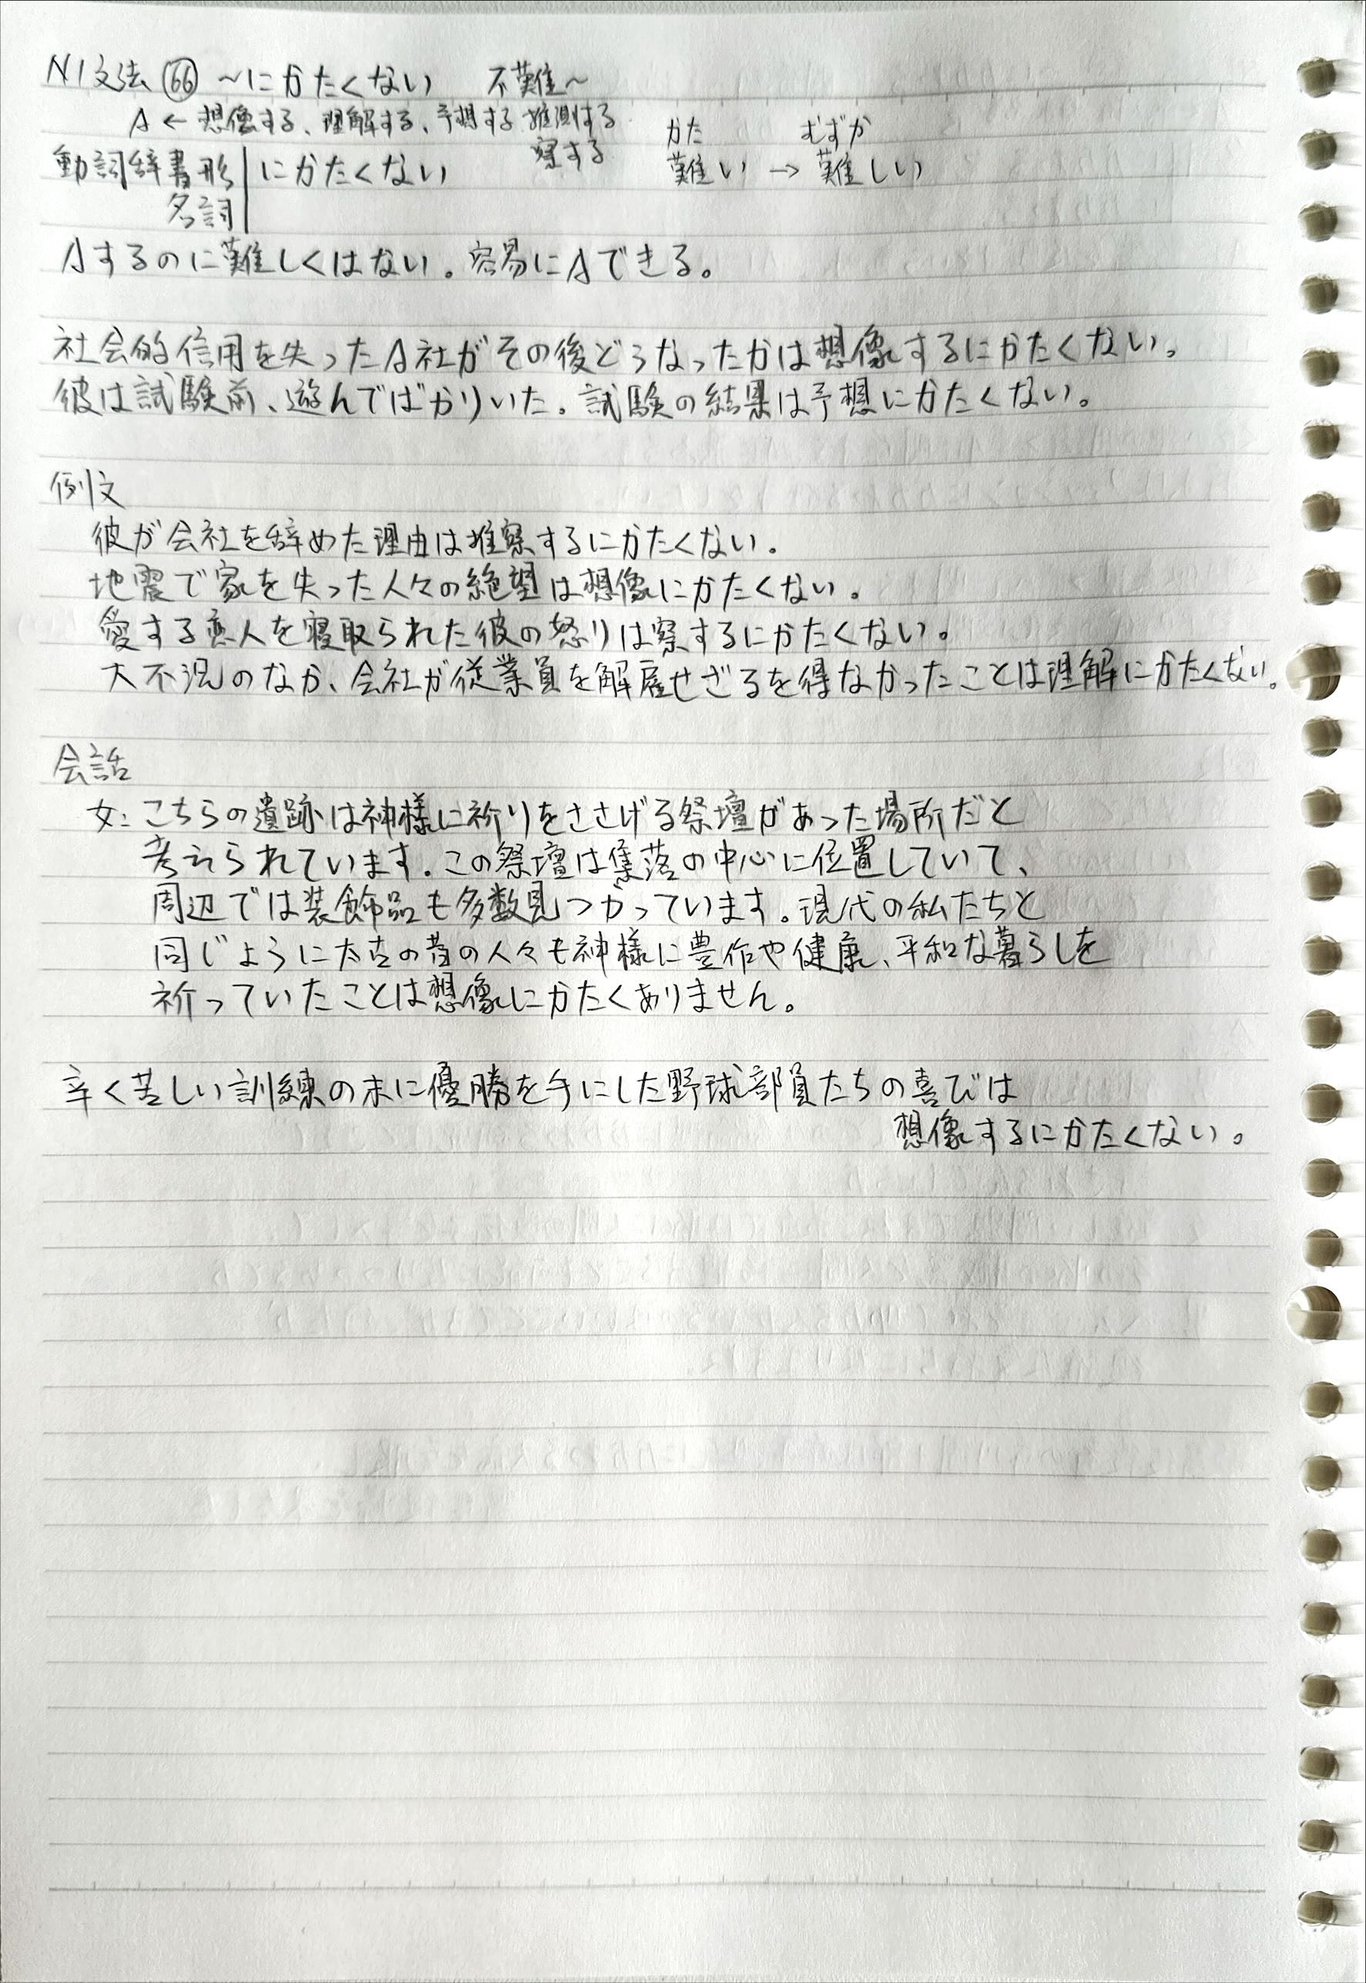 N1文法 66 ～にかたくない 不難～
A ← 想像する、理解する、予想する 推測する
察する
かた むずか
難い → 難しい
動詞辞書形 にかたくない
名詞
Aするのに難しくはない。容易にAできる。
社会的信用を失ったA社がその後どうなったかは想像するにかたくない。
彼は試験前、遊んでばかりいた。試験の結果は予想にかたくない。
例文
彼が会社を辞めた理由は推察するにかたくない。
地震で家を失った人々の絶望は想像にかたくない。
愛する恋人を寝取られた彼の怒りは察するにかたくない。
大不況のなか、会社が従業員を解雇せざるを得なかったことは理解にかたくない。
会話
女：こちらの遺跡は神様に祈りをささげる祭壇があった場所だと
考えられています。この祭壇は集落の中心に位置していて、
周辺では装飾品も多数見つかっています。現代の私たちと
同じように太古の昔の人々も神様に豊作や健康、平和な暮らしを
祈っていたことは想像にかたくありません。
辛く苦しい訓練の末に優勝を手にした野球部員たちの喜びは
想像するにかたくない。